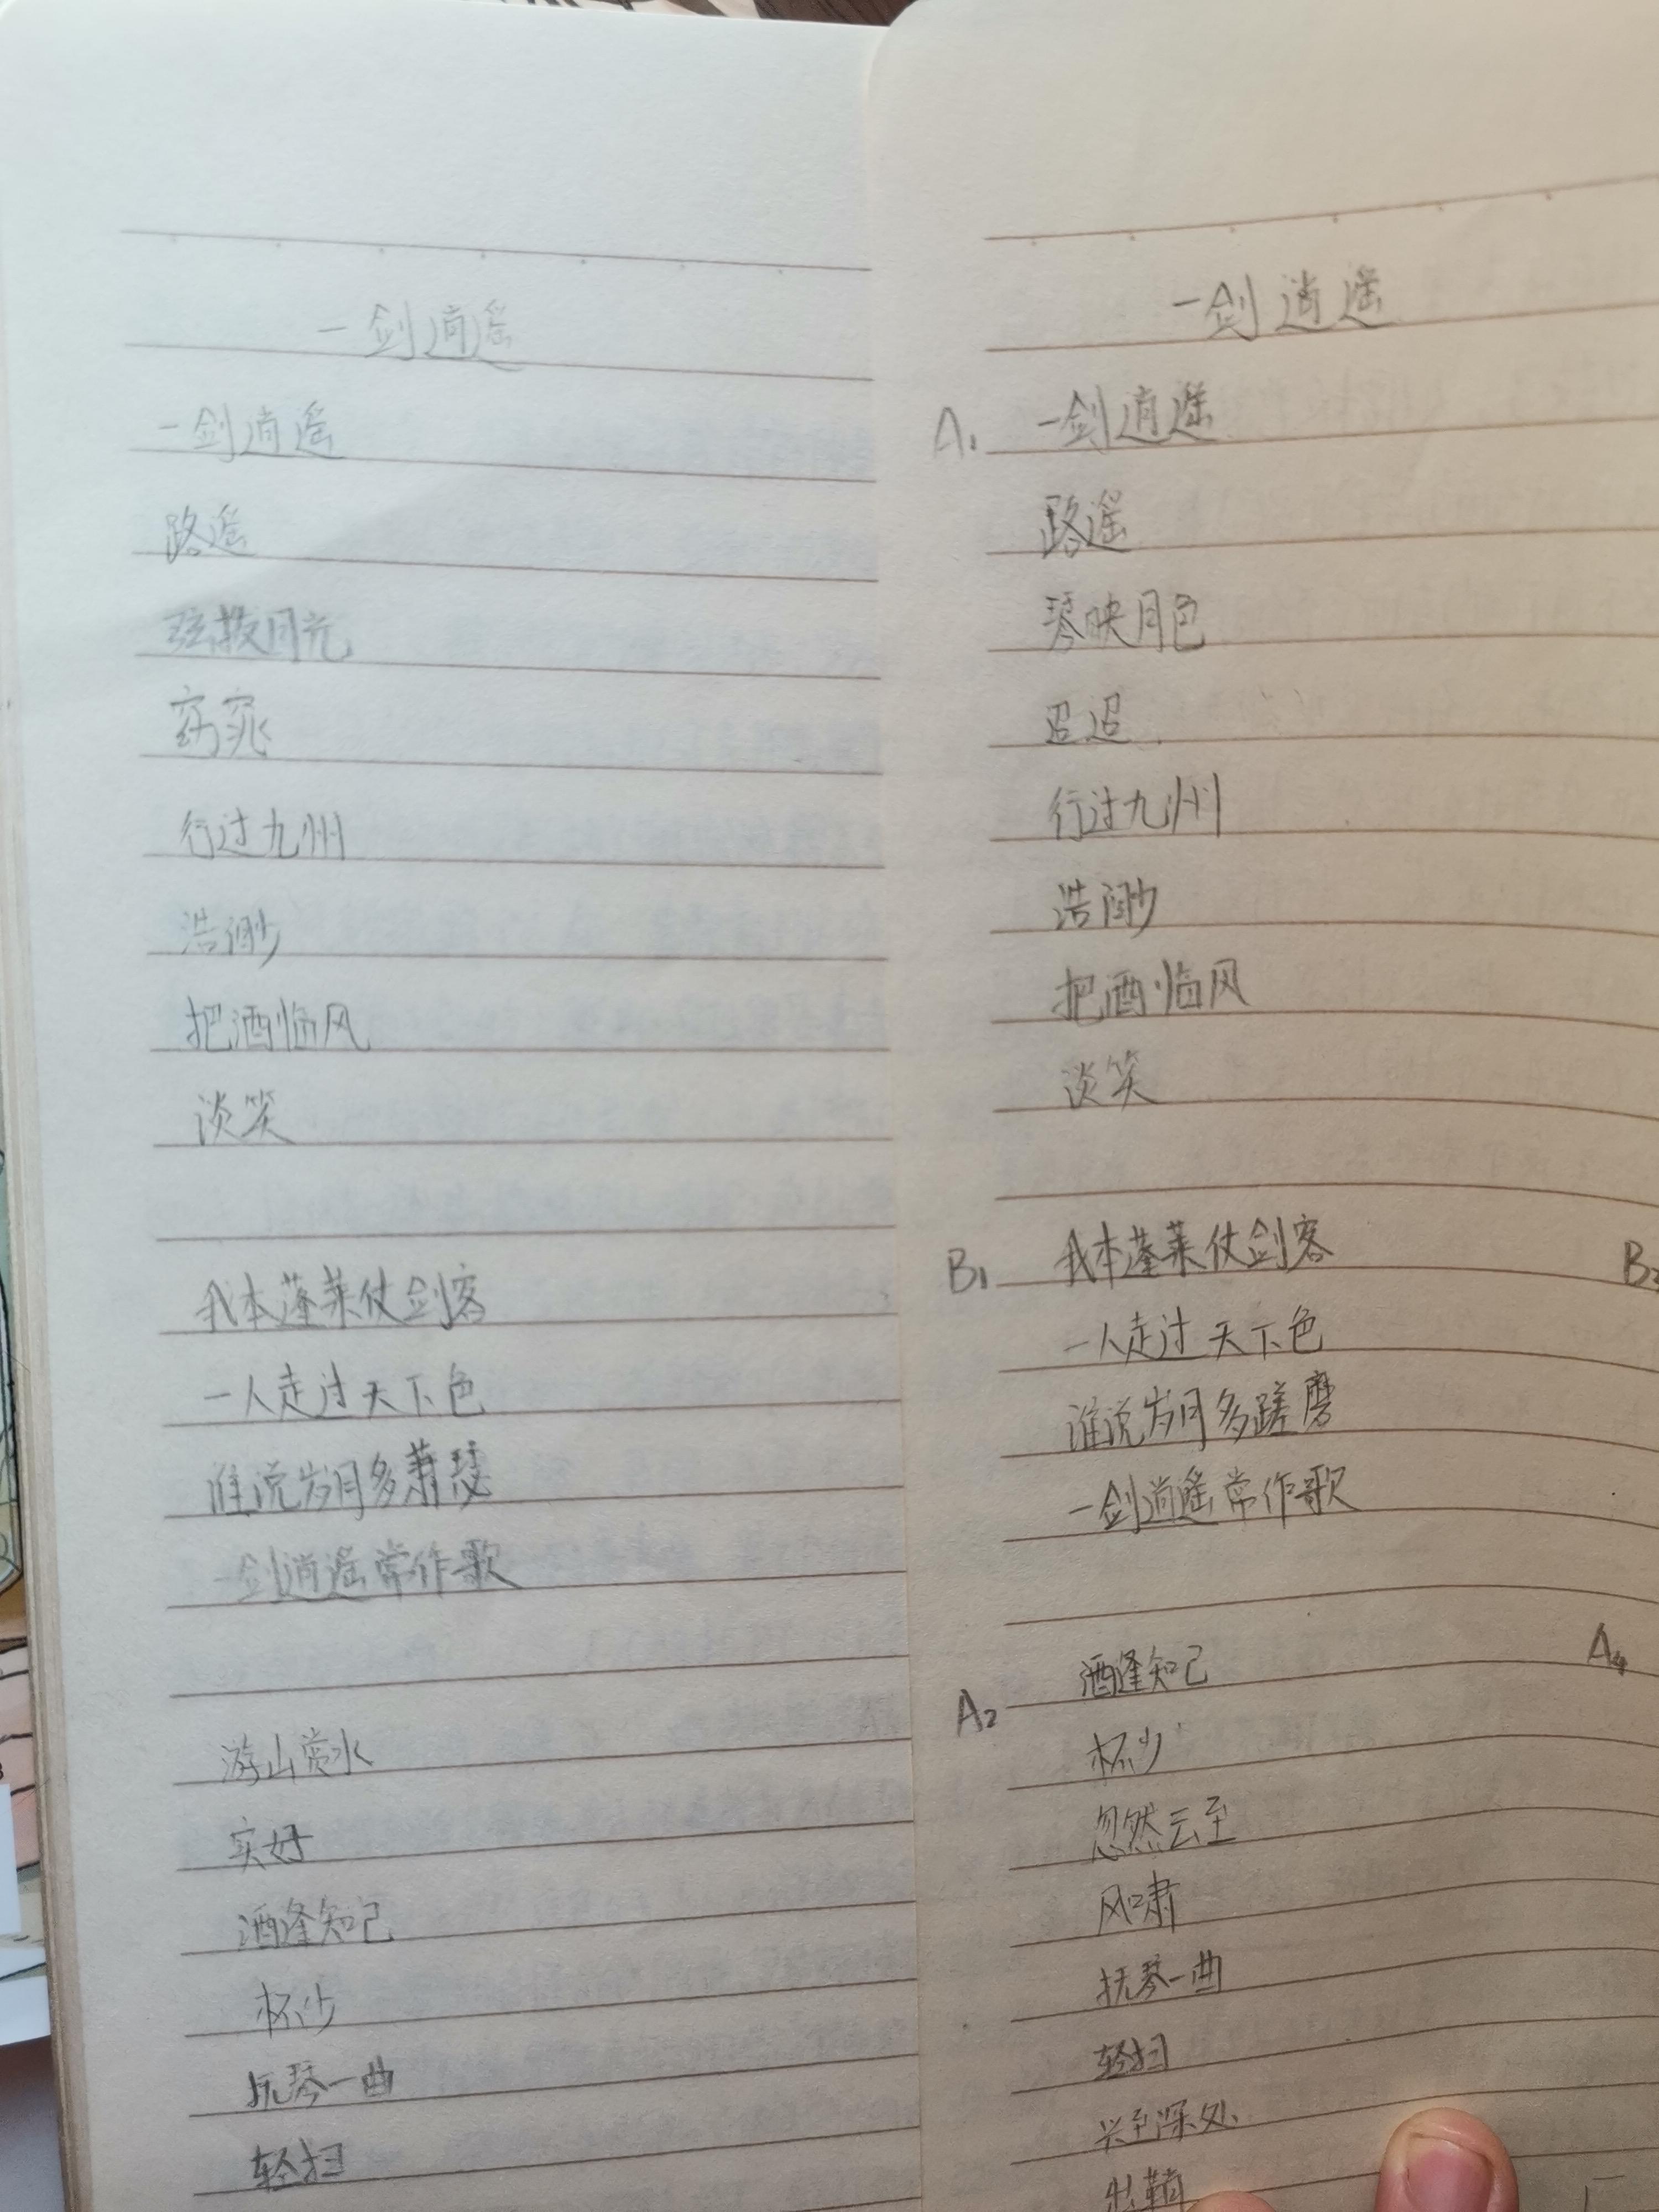 一剑逍遥
一剑逍遥
路遥
弦散月光
窈窕
行过九州
浩渺
把酒临风
淡笑
我本蓬莱仗剑客
一人走过天下色
谁说岁月多萧瑟
一剑逍遥常作歌
游山赏水
实好
酒逢知己
杯少
抚琴一曲
轻扫
一剑逍遥
A₁ 一剑逍遥
路遥
琴映月色
迢迢
行过九州
浩渺
把酒临风
淡笑
B₁ 我本蓬莱仗剑客
一人走过天下色
谁说岁月多蹉磨
一剑逍遥常作歌
A₂ 酒逢知己
杯少
忽然云至
风啸
抚琴一曲
轻扫
兴至深处
出鞘
A₄